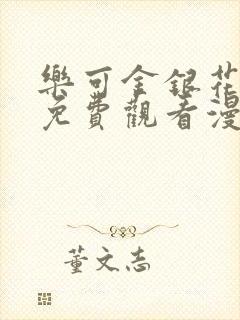 樂可金銀花
免費觀看漫
董文志